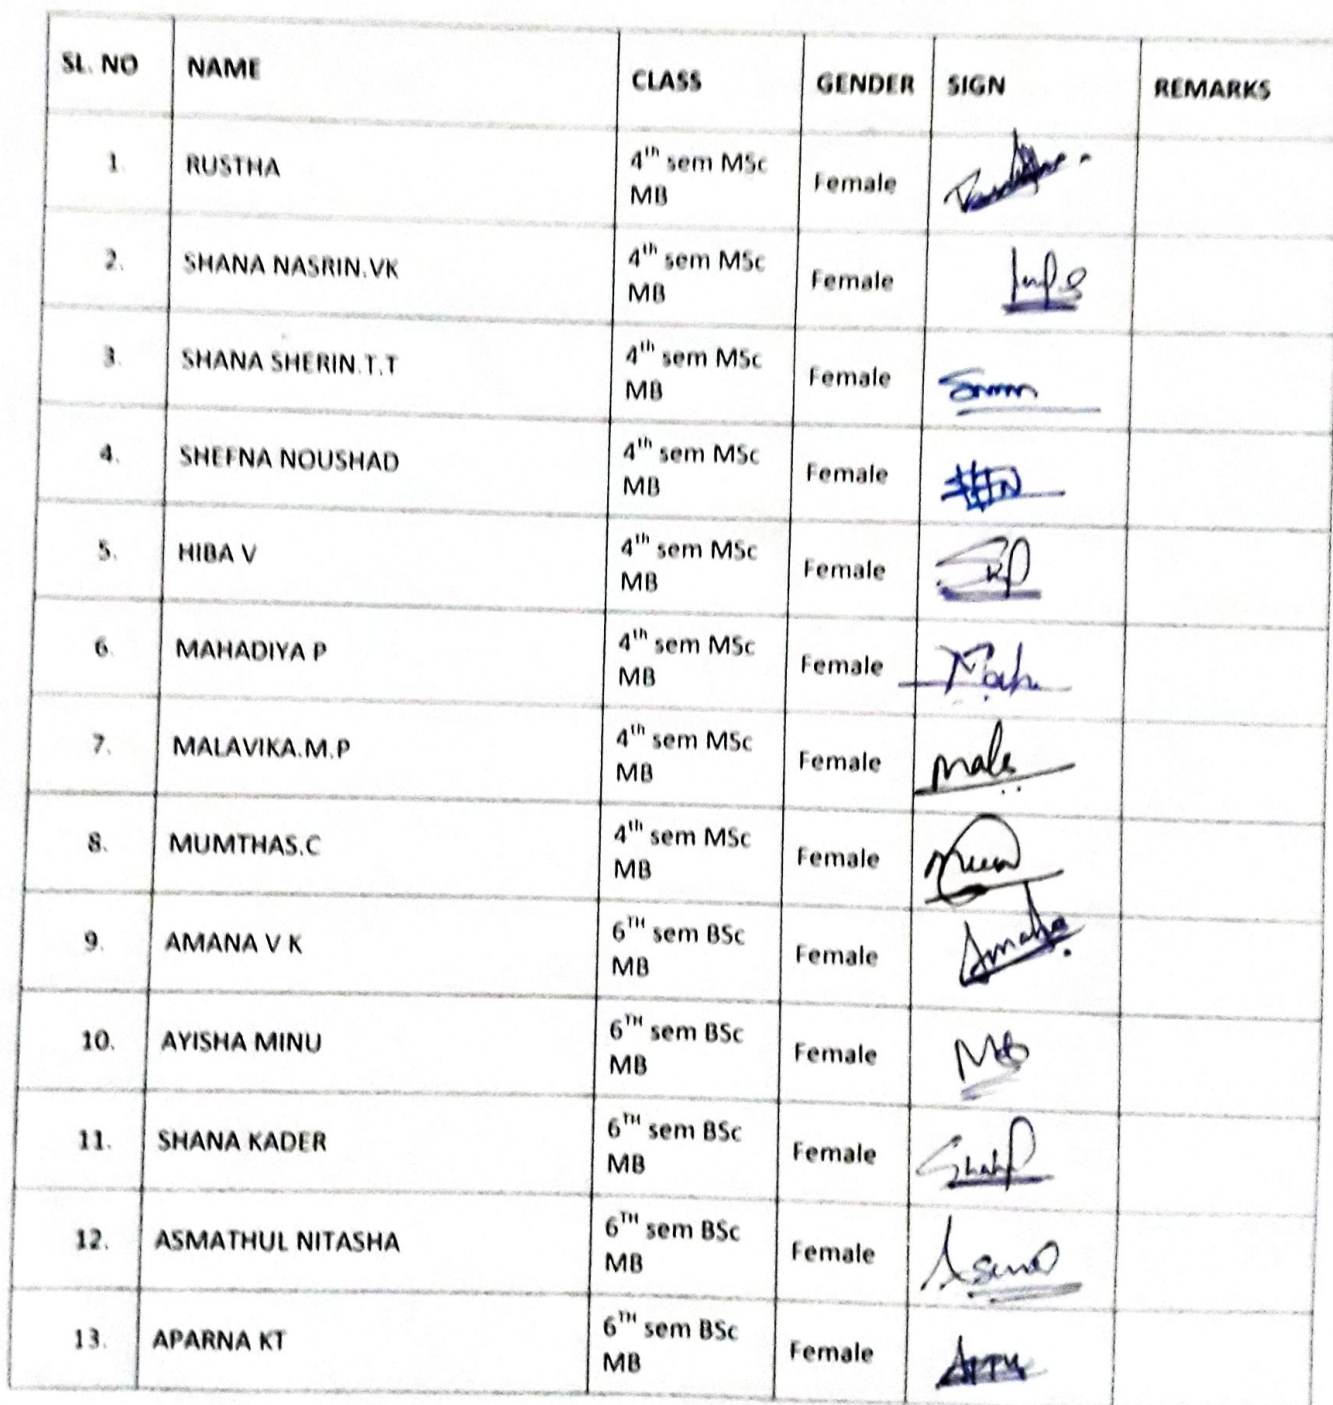 SL. NO NAME CLASS GENDER SIGN REMARKS
1. RUSTHA 4th sem MSc Female
MB
2. SHANA NASRIN.VK 4th sem MSc Female
MB
3. SHANA SHERIN.T.T 4th sem MSc Female
MB
4. SHEFNA NOUSHAD 4th sem MSc Female
MB
5. HIBA V 4th sem MSc Female
MB
6. MAHADIYA P 4th sem MSc Female
MB
7. MALAVIKA.M.P 4th sem MSc Female
MB
8. MUMTHAS.C 4th sem MSc Female
MB
9. AMANA V K 6TH sem BSc Female Amana
MB
10. AYISHA MINU 6TH sem BSc Female
MB
11. SHANA KADER 6TH sem BSc Female
MB
12. ASMATHUL NITASHA 6TH sem BSc Female
MB
13. APARNA KT 6TH sem BSc Female
MB